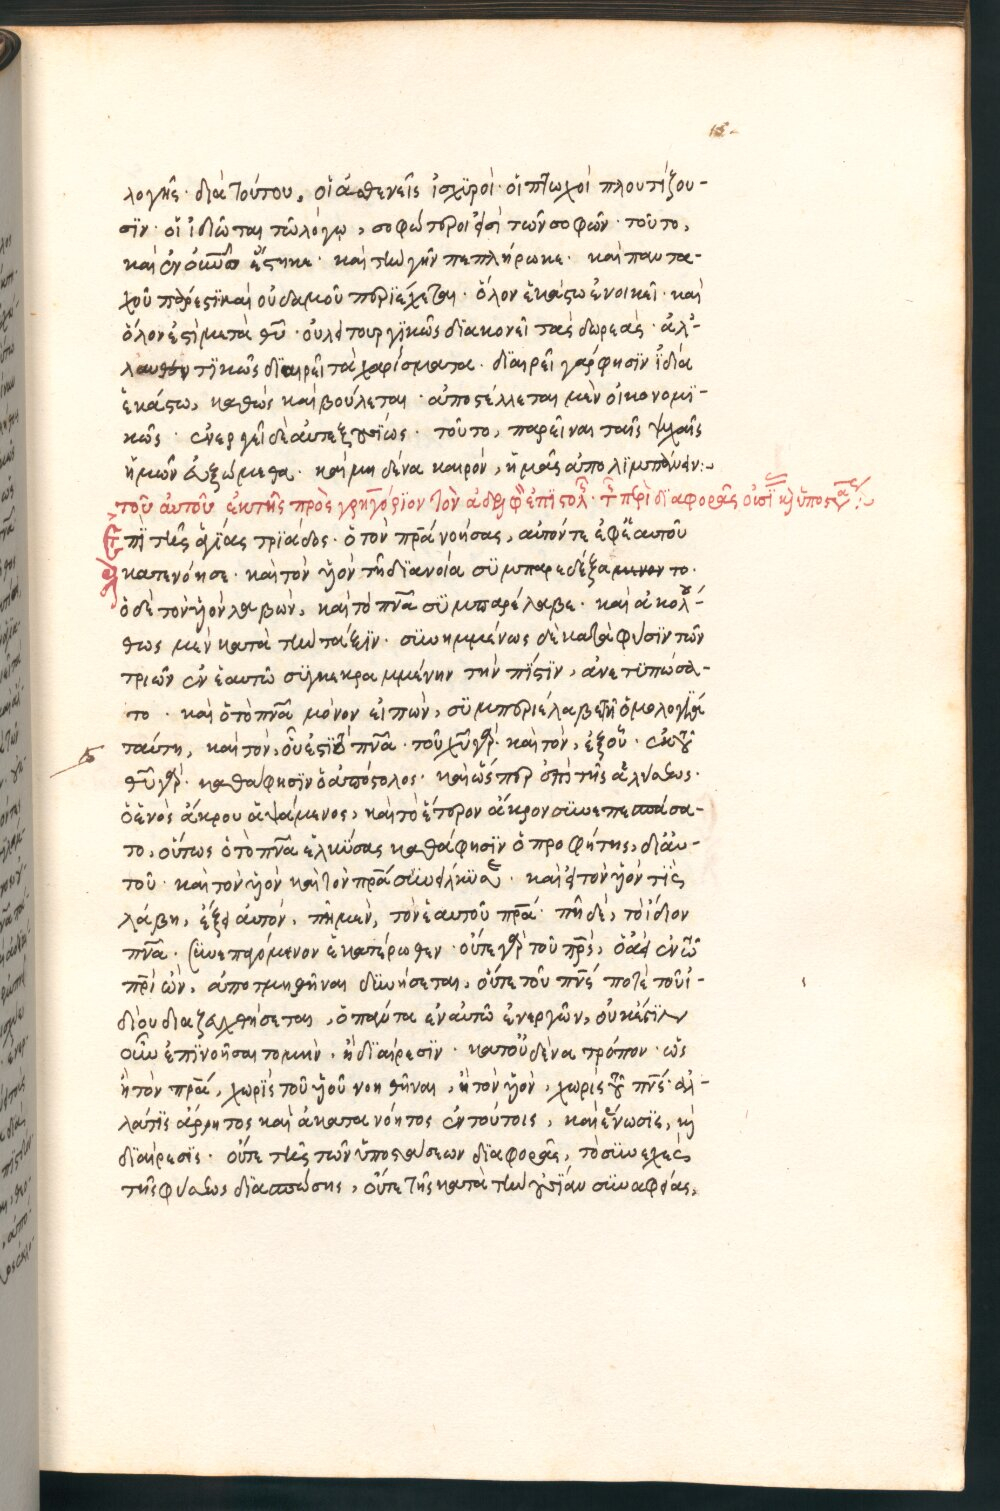 ιε
λογῆς· διὰ τούτου, οἱ ἀσθενεῖς ἰσχϋροὶ· οἱ πτωχοὶ πλουτίζου-
σϊν· οἱ ἰδιῶται τῶ λόγω, σοφώτεροι εἰσὶ τῶν σοφῶν· τοῦτο,
καὶ ἐν οὐνῶ ἕστηκε· καὶ τὴν γῆν πεπλήρωκε· καὶ παντα-
χοῦ πάρεστϊ καὶ οὐδαμοῦ περϊέχεται· ὅλον ἑκάστω ἐνοικεῖ· καὶ
ὅλον ἐστὶ μετὰ θῦ· οὐ λειτουργϊκῶς δϊακονεῖ τὰς δωρεὰς· ἀλ-
λ' αυθεντϊκῶς δϊαιρεῖ τὰ χαρίσματα· δϊαιρεῖ γάρ φησϊν ἰδία
ἑκάστω, καθὼς καὶ βούλεται· ἀποστέλλεται μὲν οἰκονομϊ-
κῶς· ἐνεργεῖ δὲ αὐτεξουσίως· τοῦτο, παρεῖναι ταῖς ψχαῖς
ἡμῶν εὐξώμεθα· καὶ μηδένα καιρόν, ἡμᾶς ἀπολϊμπάνειν:~
τοῦ αὐτοῦ ἐκ τῆς πρὸς γρηγόριον τὸν ἀδελφὸν ἐπϊστολῆς· τῆς περὶ διαφορᾶς οὐσί κὴ ὑποστάσεως:
Ἐπὶ τῆς ἁγίας τριάδος· ὁ τὸν πρα νοήσας, αὐτόν τε ἐφ' ἑαυτοῦ
κατενόησε· καὶ τὸν υἱὸν τῆ δϊανοία συμπαρεδέξατο·
ὁ δὲ τὸν υἱὸν λαβὼν, καὶ τὸ πνα συμπαρέλαβε· καὶ ἀκολού-
θως μὲν κατὰ τὴν τάξϊν· συνημμένως δὲ κατὰ φύσϊν τῶν
τριῶν ἐν ἑαυτῶ συγκεκραμμένην τὴν πίστϊν, ἀνετϋπώσα-
το· καὶ ὁ τὸ πνα μόνον εἰπὼν, συμπεριέλαβε τῆ ὁμολογία
ταύτη, καὶ τὸν, οὗ ἐστϊ τὸ πνα· τοῦ χῦ γὰρ· καὶ τὸν, ἐξ οὗ· ἐκ τοῦ
θῦ γὰρ· καθά φησϊν ὁ ἀπόστολος· καὶ ὥσπερ ἐπὶ τῆς ἁλύσεως·
ὁ ἑνὸς ἄκρου ἁψάμενος, καὶ τὸ ἕτερον ἄκρον συνεπεσπάσα-
το, οὕτως ὁ τὸ πνα ἑλκύσας καθά φησϊν ὁ προφήτης, δι' αὐ-
τοῦ· καὶ τὸν υἱὸν καὶ τὸν πρα συνείλκυσε· καὶ εἰ τὸν υἱόν τϊς
λάβη, ἕξει αὐτὸν, πῆ μὲν, τὸν ἑαυτοῦ πρα· πῆ δὲ, τὸ ἴδιον
πνα· συνεπαγόμενον ἑκατέρωθεν· οὔτε γὰρ τοῦ πρς, ὁ ἀεὶ ἐν τῶ
πρι ὢν, ἀποτμηθῆναι δυνήσεται, οὔτε τοῦ πνς ποτὲ τοῦ ἰ-
δίου διαζευχθήσεται, ὁ πάντα ἐν αὐτῶ ἐνεργῶν, οὐκ ἔστϊν
οὖν ἐπϊνοῆσαι τομὴν, ἢ δϊαίρεσϊν· κατ' οὐδένα τρόπον· ὡς
ἢ τὸν πρα, χωρὶς τοῦ υἱοῦ νοηθῆναι, ἢ τὸν υἱὸν, χωρὶς τοῦ πνς· ἀλ-
λά τϊς ἄρρητος καὶ ἀκατανόητος ἐν τούτοις, καὶ ἕνωσϊς, κὴ
δϊαίρεσϊς· οὔτε τῆς τῶν ὑποστάσεων δϊαφορᾶς, τὸ συνεχὲς
τῆς φύσεως δϊασπώσης, οὔτε τῆς κατὰ τὴν οὐσίαν συναφείας,